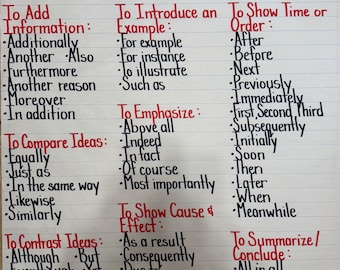 To Add
Information:
·Additionally
·Another ·Also
·Furthermore
·Another reason
·Moreover
·In addition
To Compare Ideas:
·Equally
·Just as
·In the same way
·Likewise
·Similarly
To Contrast Ideas:
·Although ·But
To Introduce an
Example:
·For example
·For instance
·To illustrate
·Such as
To Emphasize:
·Above all
·Indeed
·In fact
·Of course
·Most importantly
To Show Cause &
Effect:
·As a result
·Consequently
To Show Time or
Order:
·After
·Before
·Next
·Previously
·Immediately
·First, Second, Third
·Subsequently
·Initially
·Soon
·Then
·Later
·When
·Meanwhile
To Summarize/
Conclude:
·All in all